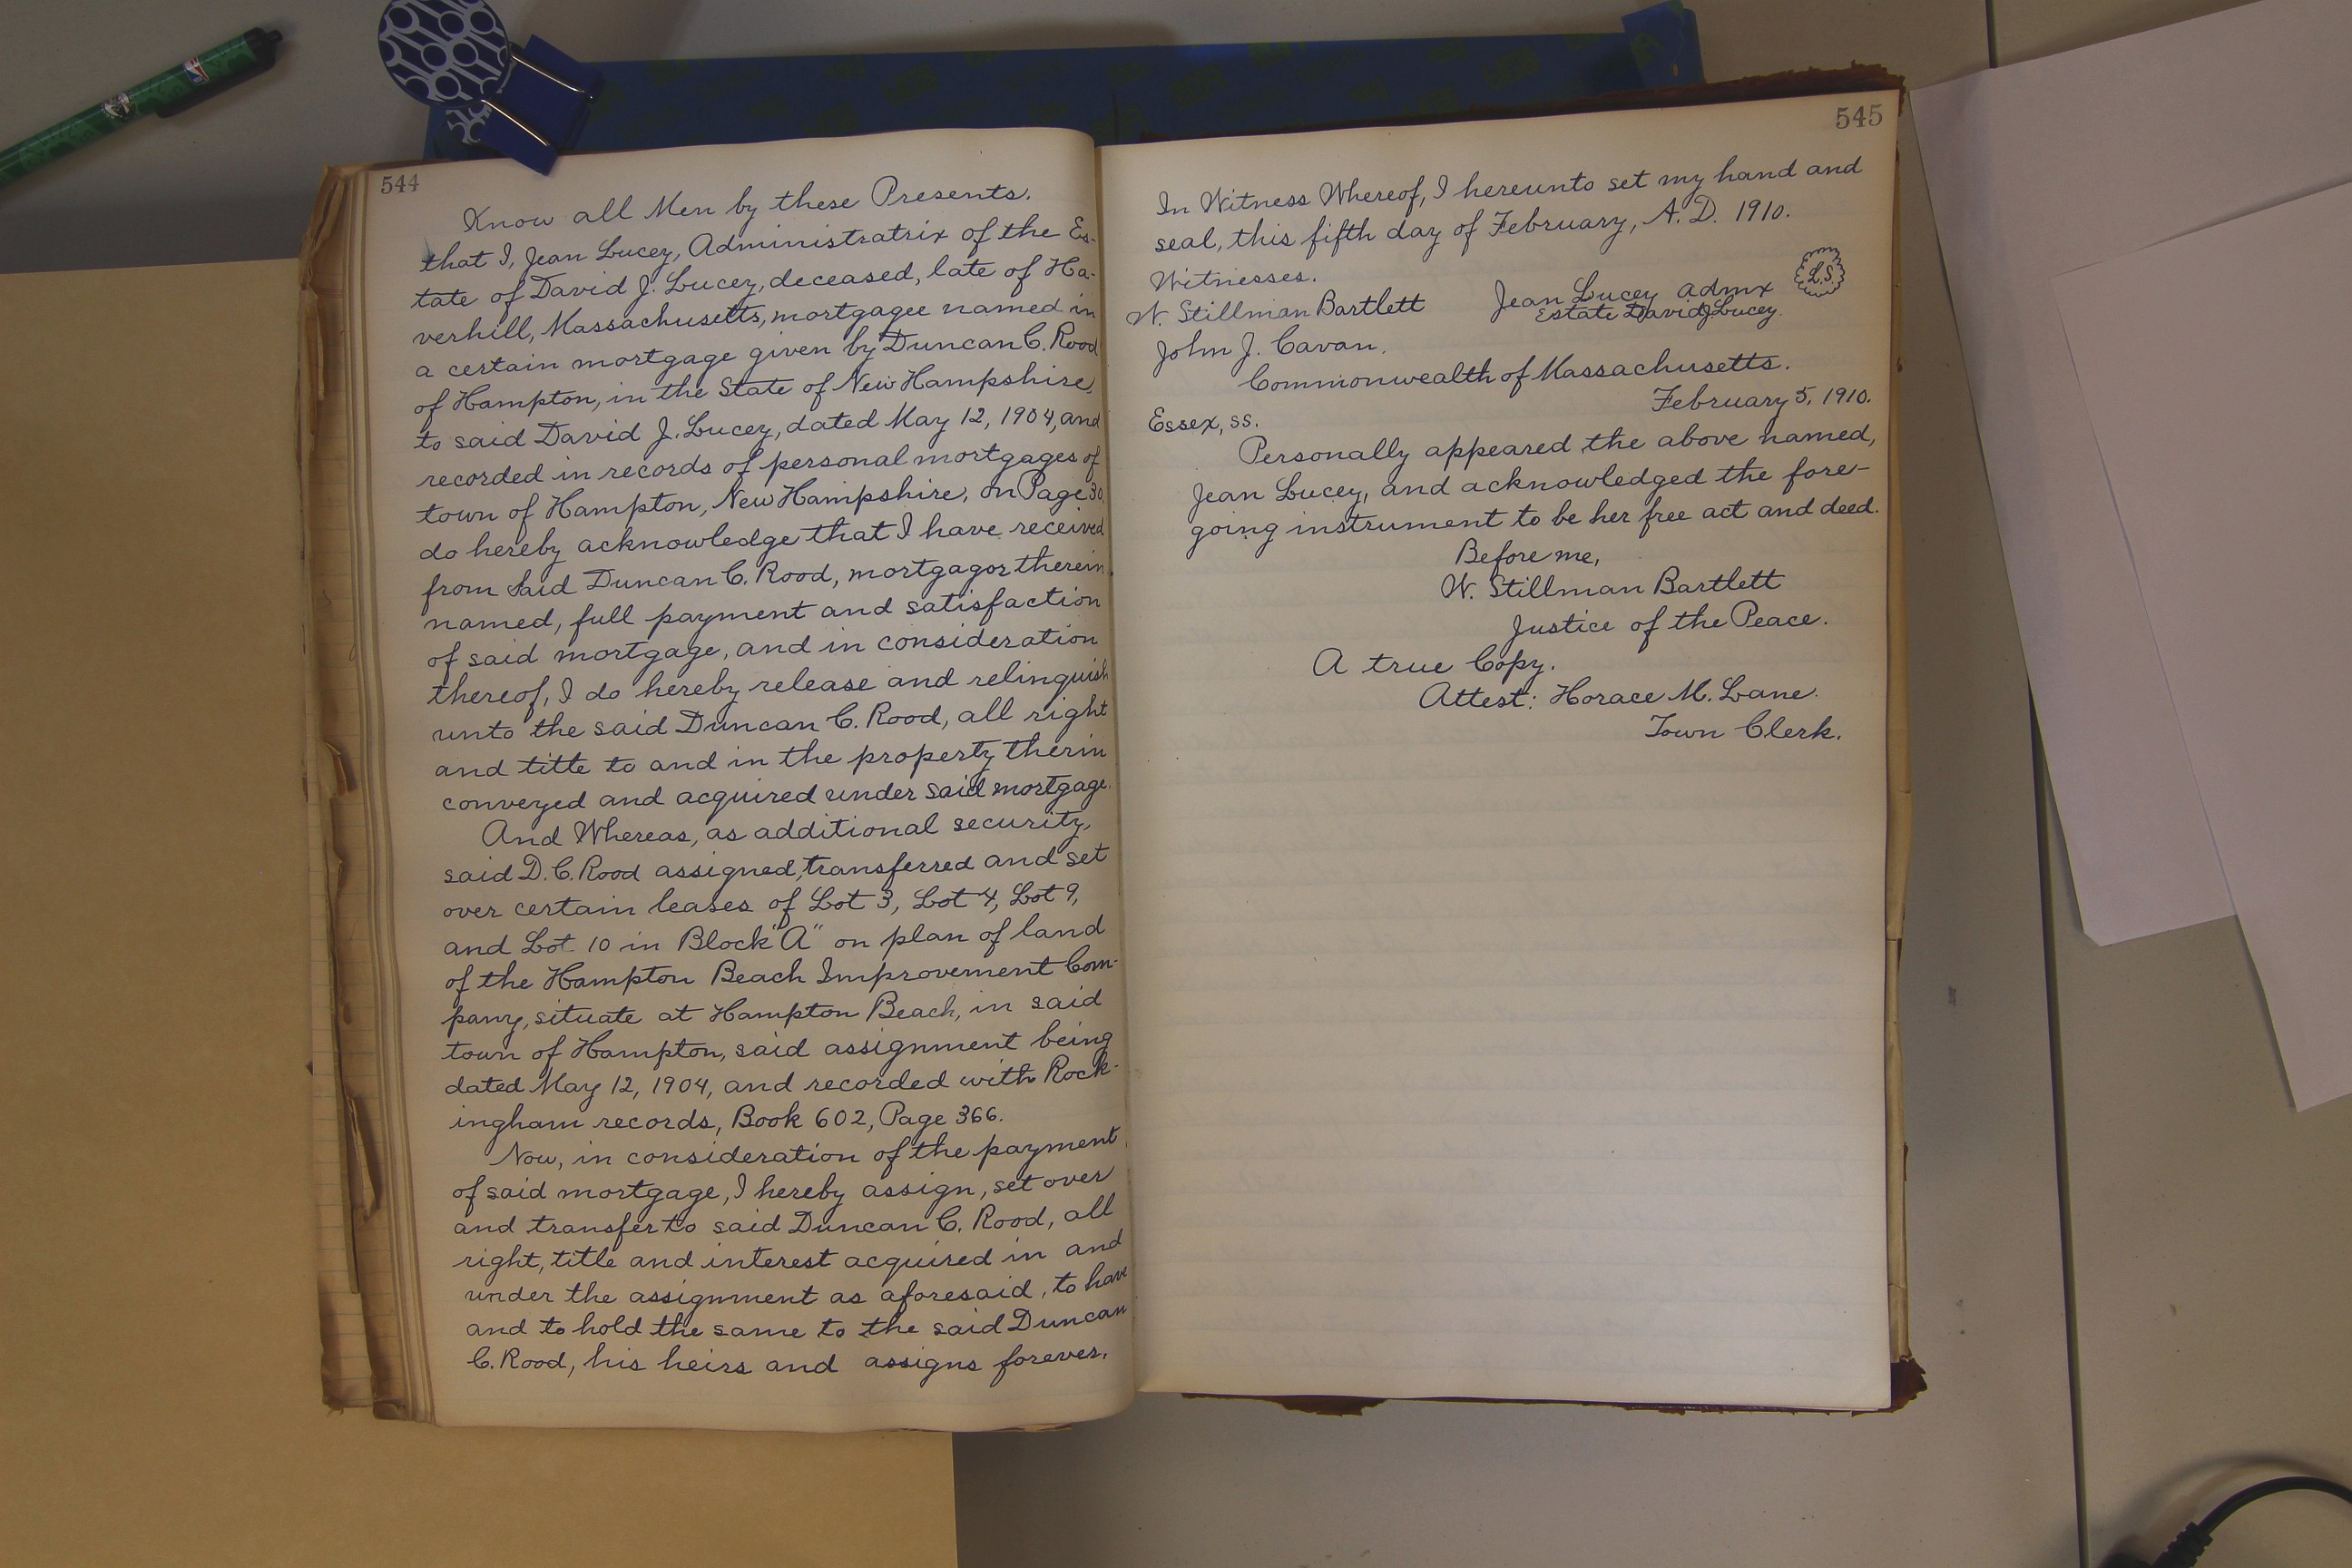 544
Know all Men by these Presents.
that I, Jean Lucey, Administratrix of the Es-
tate of David J. Lucey, deceased, late of Ha-
verhill, Massachusetts, mortgagee named in
a certain mortgage given by Duncan C. Rood
of Hampton, in the State of New Hampshire,
to said David J. Lucey, dated May 12, 1904, and
recorded in records of personal mortgages of
town of Hampton, New Hampshire, on Page 30,
do hereby acknowledge that I have received
from said Duncan C. Rood, mortgagor therein
named, full payment and satisfaction
of said mortgage, and in consideration
thereof, I do hereby release and relinquish
unto the said Duncan C. Rood, all right
and title to and in the property therin
conveyed and acquired under said mortgage.
And Whereas, as additional security,
said D. C. Rood assigned, transferred and set
over certain leases of Lot 3, Lot 4, Lot 9,
and Lot 10 in Block "A" on plan of land
of the Hampton Beach Improvement Com-
pany, situate at Hampton Beach, in said
town of Hampton, said assignment being
dated May 12, 1904, and recorded with Rock-
ingham records, Book 602, Page 366.
Now, in consideration of the payment
of said mortgage, I hereby assign, set over
and transfer to said Duncan C. Rood, all
right, title and interest acquired in and
under the assignment as aforesaid, to have
and to hold the same to the said Duncan
C. Rood, his heirs and assigns forever.
545
In Witness Whereof, I hereunto set my hand and
seal, this fifth day of February, A. D. 1910.
Witnesses.
W. Stillman Bartlett Jean Lucey Admx L.S.
Estate David J Lucey.
John J. Cavan.
Commonwealth of Massachusetts.
February 5, 1910.
Essex, ss.
Personally appeared the above named,
Jean Lucey, and acknowledged the fore-
going instrument to be her free act and deed.
Before me,
W. Stillman Bartlett
Justice of the Peace.
A true Copy.
Attest: Horace M. Lane.
Town Clerk.